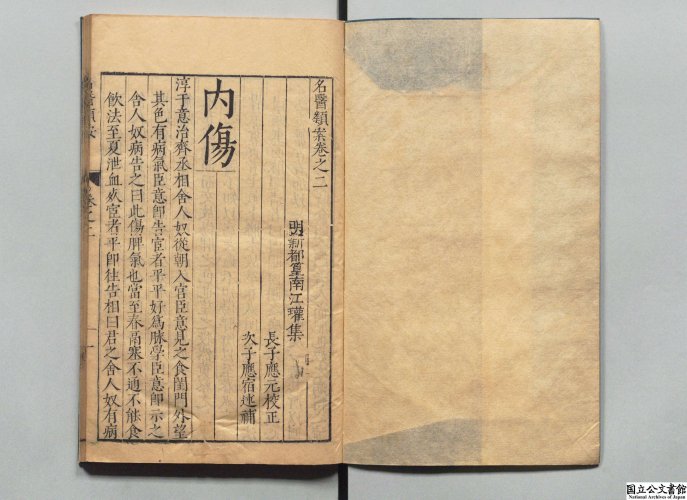 名醫類案卷之二
明新都篁南江瓘集
長子應元校正
次子應宿述補
內傷
淳于意治齊丞相舍人奴從朝入宮臣意見之食閨門外望
其色有病氣臣意即告宦者平平好為脉學臣意即示之
舍人奴病告之曰此傷脾氣也當至春鬲塞不通不能食
飲法至夏泄血死宦者平即往告相曰君之舍人奴有病
名醫類案
卷之二
一
国立公文書館
National Archives of Japan